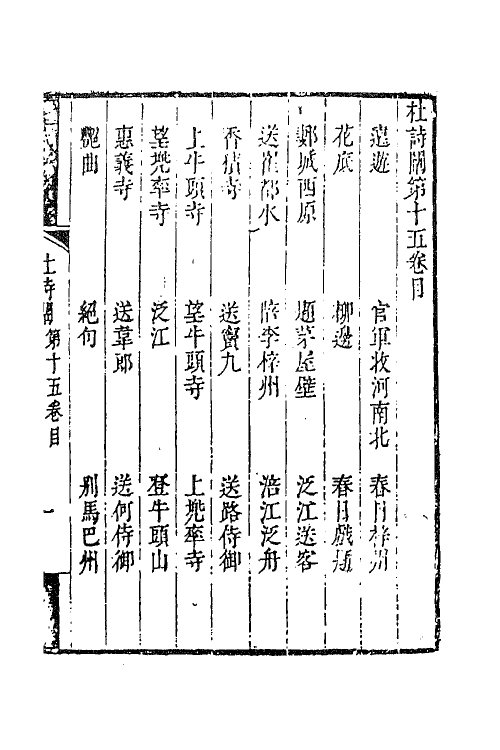 杜詩闡第十五卷目
遠遊 官軍收河南北 春日梓州
花底 柳邊 春日戲題
郪城西原 題茅屋壁 泛江送客
送崔都水 陪李梓州 涪江泛舟
香積寺 送竇九 送路侍御
上牛頭寺 望牛頭寺 上兜率寺
望兜率寺 泛江 登牛頭山
惠義寺 送韋郎 送何侍御
艷曲 絕句 別馬巴州
杜詩闡第十五卷目 一